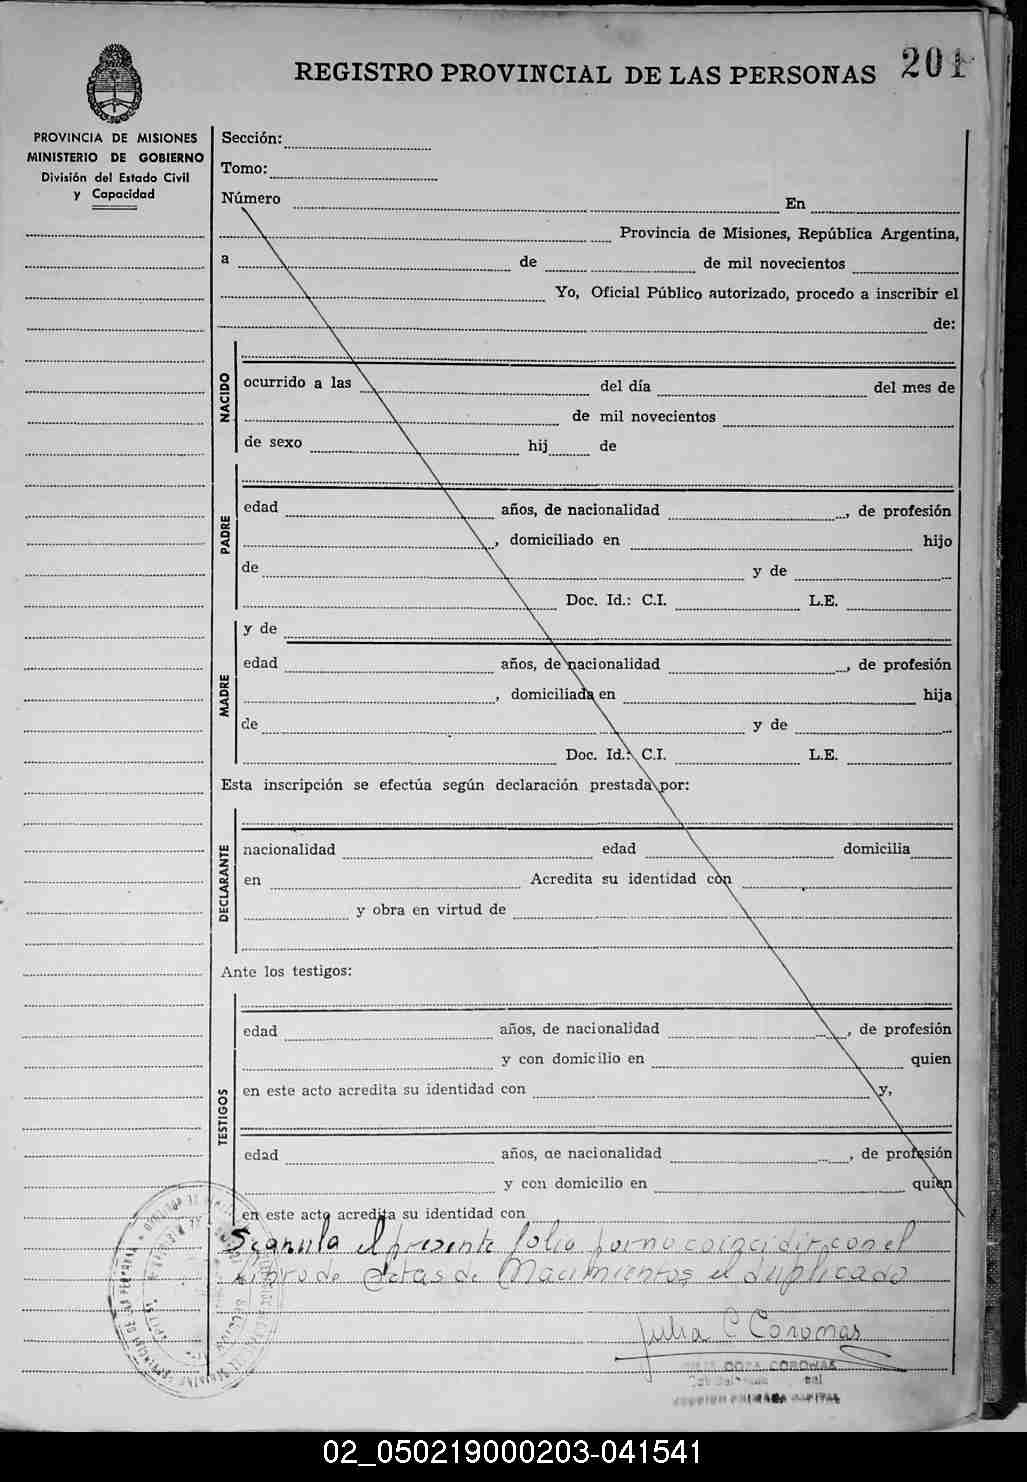 REGISTRO PROVINCIAL DE LAS PERSONAS 201
PROVINCIA DE MISIONES
MINISTERIO DE GOBIERNO
División del Estado Civil
y Capacidad
Sección:
Tomo:
Número En
Provincia de Misiones, República Argentina,
a de de mil novecientos
Yo, Oficial Público autorizado, procedo a inscribir el
de:
NACIDO
ocurrido a las del día del mes de
de mil novecientos
de sexo hij de
PADRE
edad años, de nacionalidad , de profesión
, domiciliado en hijo
de y de
Doc. Id.: C.I. L.E.
y de
MADRE
edad años, de nacionalidad , de profesión
, domiciliada en hija
de y de
Doc. Id.: C.I. L.E.
Esta inscripción se efectúa según declaración prestada por:
DECLARANTE
nacionalidad edad domicilia
en Acredita su identidad con
y obra en virtud de
Ante los testigos:
TESTIGOS
edad años, de nacionalidad , de profesión
y con domicilio en quien
en este acto acredita su identidad con y,
edad años, de nacionalidad , de profesión
y con domicilio en quien
en este acto acredita su identidad con
Se anula el presente folio por no coincidir con el
Libro de Actas de Nacimientos el duplicado
Julia C Coronas
CORONAS
SECCION PRIMERA CAPITAL
02_050219000203-041541